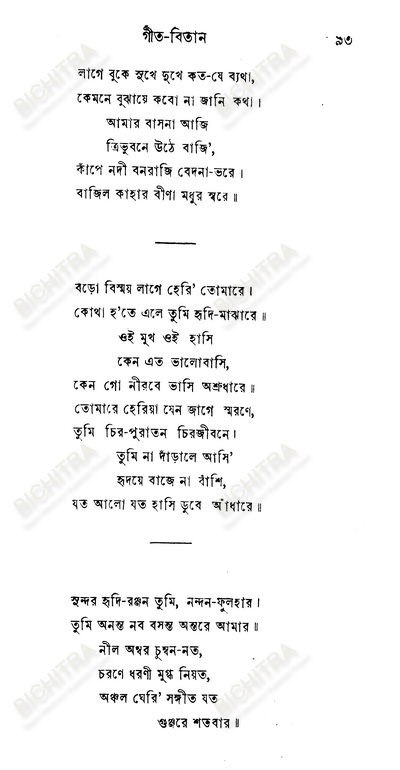 গীত-বিতান ৯৩
লাগে বুকে সুখে দুখে কত-যে ব্যথা,
কেমনে বুঝায়ে কবো না জানি কথা।
আমার বাসনা আজি
ত্রিভুবনে উঠে বাজি',
কাঁপে নদী বনরাজি বেদনা-ভরে।
বাজিল কাহার বীণা মধুর স্বরে॥
বড়ো বিস্ময় লাগে হেরি' তোমারে।
কোথা হ'তে এলে তুমি হৃদি-মাঝারে॥
ওই মুখ ওই হাসি
কেন এত ভালোবাসি,
কেন গো নীরবে ভাসি অশ্রুধারে॥
তোমারে হেরিয়া যেন জাগে স্মরণে,
তুমি চির-পুরাতন চিরজীবনে।
তুমি না দাঁড়ালে আসি'
হৃদয়ে বাজে না বাঁশি,
যত আলো যত হাসি ডুবে আঁধারে॥
সুন্দর হৃদি-রঞ্জন তুমি, নন্দন-ফুলহার।
তুমি অনন্ত নব বসন্ত অন্তরে আমার॥
নীল অম্বর চুম্বন-নত,
চরণে ধরণী মুগ্ধ নিয়ত,
অঞ্চল ঘেরি' সঙ্গীত যত
গুঞ্জরে শতবার॥
BICHITRA
BICHITRA
BICHITRA
BICHITRA
BICHITRA
BICHITRA
BICHITRA
BICHITRA